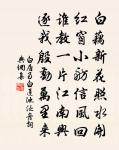 白藕新花照水開
紅窗小舫信風回
誰教一片江南興
逐我殷勤萬里來
白居易白蓮池泛舟